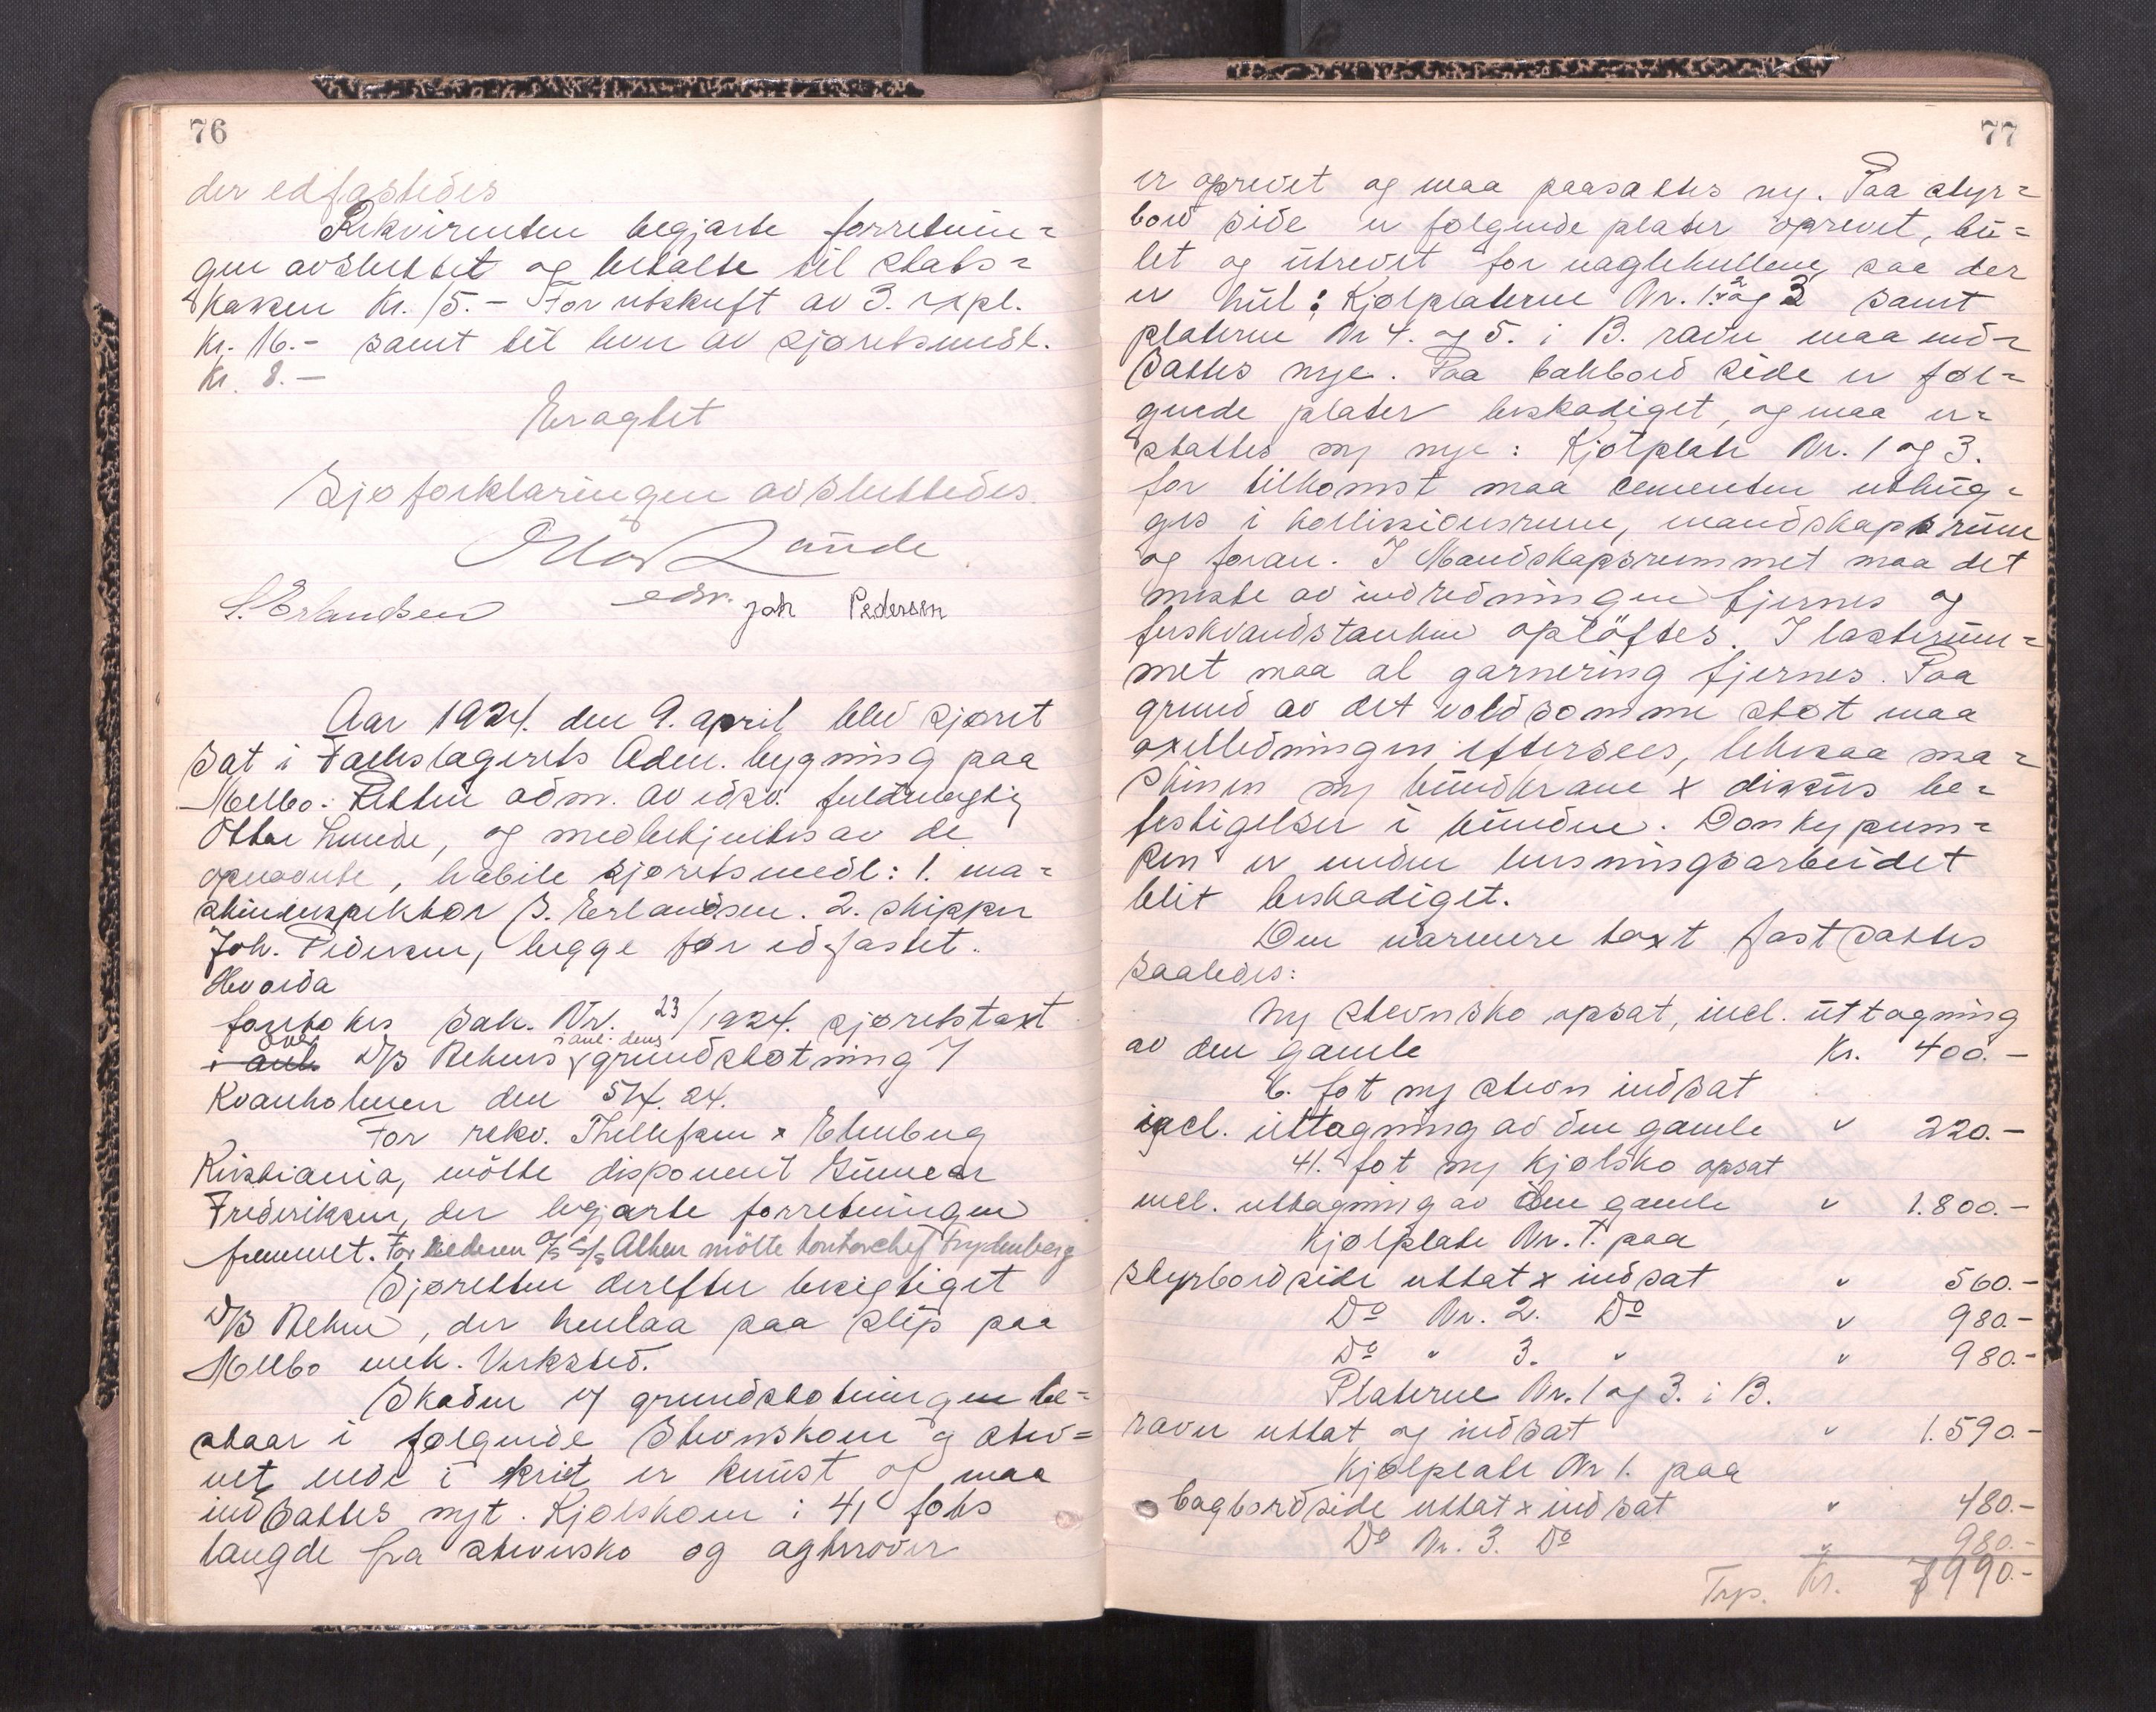 76
der edfæstedes
Rekvirenten begjærte forretnin=
gen avsluttet og betalte til stats=
kassen Kr. 15.- For utskrift av 3. expl.
Kr. 16.- samt til hver av sjøretsmedl.
Kr. 8.-
Eragtet
Sjøforklaringen avsluttedes.
Otto Lunde
edsv.
S. Erlandsen Joh Pedersen
Aar 1924. den 9. april blev sjøret
sat i Fælleslagerets Adm. bygning paa
Melbo. Retten adm. av edsv. fuldmægtig
Otto Lunde, og medbetjentes av de
opnævnte, habile sjøretsmedl: 1. ma=
skininspektør S. Erlandsen. 2. skipper
Joh. Pedersen, begge før edfæstet.
Hvorda
foretokes Sak. Nr. 23/1924. sjøretstaxt
i anl. over D/S Rehns i anl. dens grundstøtning I
Kvanholmen den 5/4. 24.
For rekv. Thellefsen & Ehenberg
Kristiania, møtte disponent Gunnar
Frederiksen, der begjærte forretningen
fremmet. For rederen A/S S/S Alken møtte kontorchef Frydenberg
Sjøretten derefter besigtiget
D/S Rehn, der henlaa paa slip paa
Melbo mek. Verksted.
Skaden v/ grundstøtningen be=
staar i følgende Stevnskoen og stev=
net nede i kriet er knust og maa
indsættes nyt. Kjølskoen i 41 fots
længde fra stevnsko og agterover
77
er oprevet og maa paasættes ny. Paa styr=
bord side er følgende plater oprevet, bu=
let og utrevet for naglehullene, saa der
er hul: Kjølplaterne Nr. 1. 2 og 3 samt
platerne Nr 4. og 5. i B. raden maa ind=
sættes nye. Paa bakbord side er føl=
gende plater beskadiget, og maa er=
stattes ny nye: Kjølplate Nr. 1 og 3.
for tilkomst maa cementen uthug=
ges i kollisionsrum, mandskapsrum
og foran. I Mandskapsrummet maa det
meste av indredningen fjernes og
ferskvandstanken opløftes. I lasterum=
met maa al garnering fjernes. Paa
grund av det voldsomme støt maa
axelledningen eftersees, likesaa ma=
skinen ny bundkrane & dissus be=
festigelser i bunden. Donkypum=
pen er under lensningsarbeidet
blit beskadiget.
Den nærmere taxt fastsættes
saaledes:
Ny stevnsko opsat, incl. uttagning
av den gamle Kr. 400.-
6. fot ny stevn indsat
incl. uttagning av den gamle " 220.-
41. fot ny kjølsko opsat
incl. uttagning av den gamle " 1.800.-
Kjølplate Nr. 1. paa
Styrbordside uttat & indsat " 560.-
Do Nr. 2. Do " 980.-
Do " 3. " " 980.-
Platerne Nr. 1 og 3. i B.
raden uttat og indsat " 1.590.-
Kjølplate Nr 1. paa
bagbordside uttat & indsat " 480.-
Do Nr. 3. Do " 980.-
Trp. Kr. 7990.-